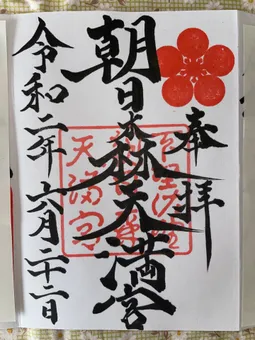 奉拝
朝日森天満宮
天満宮
令和二年六月二十二日